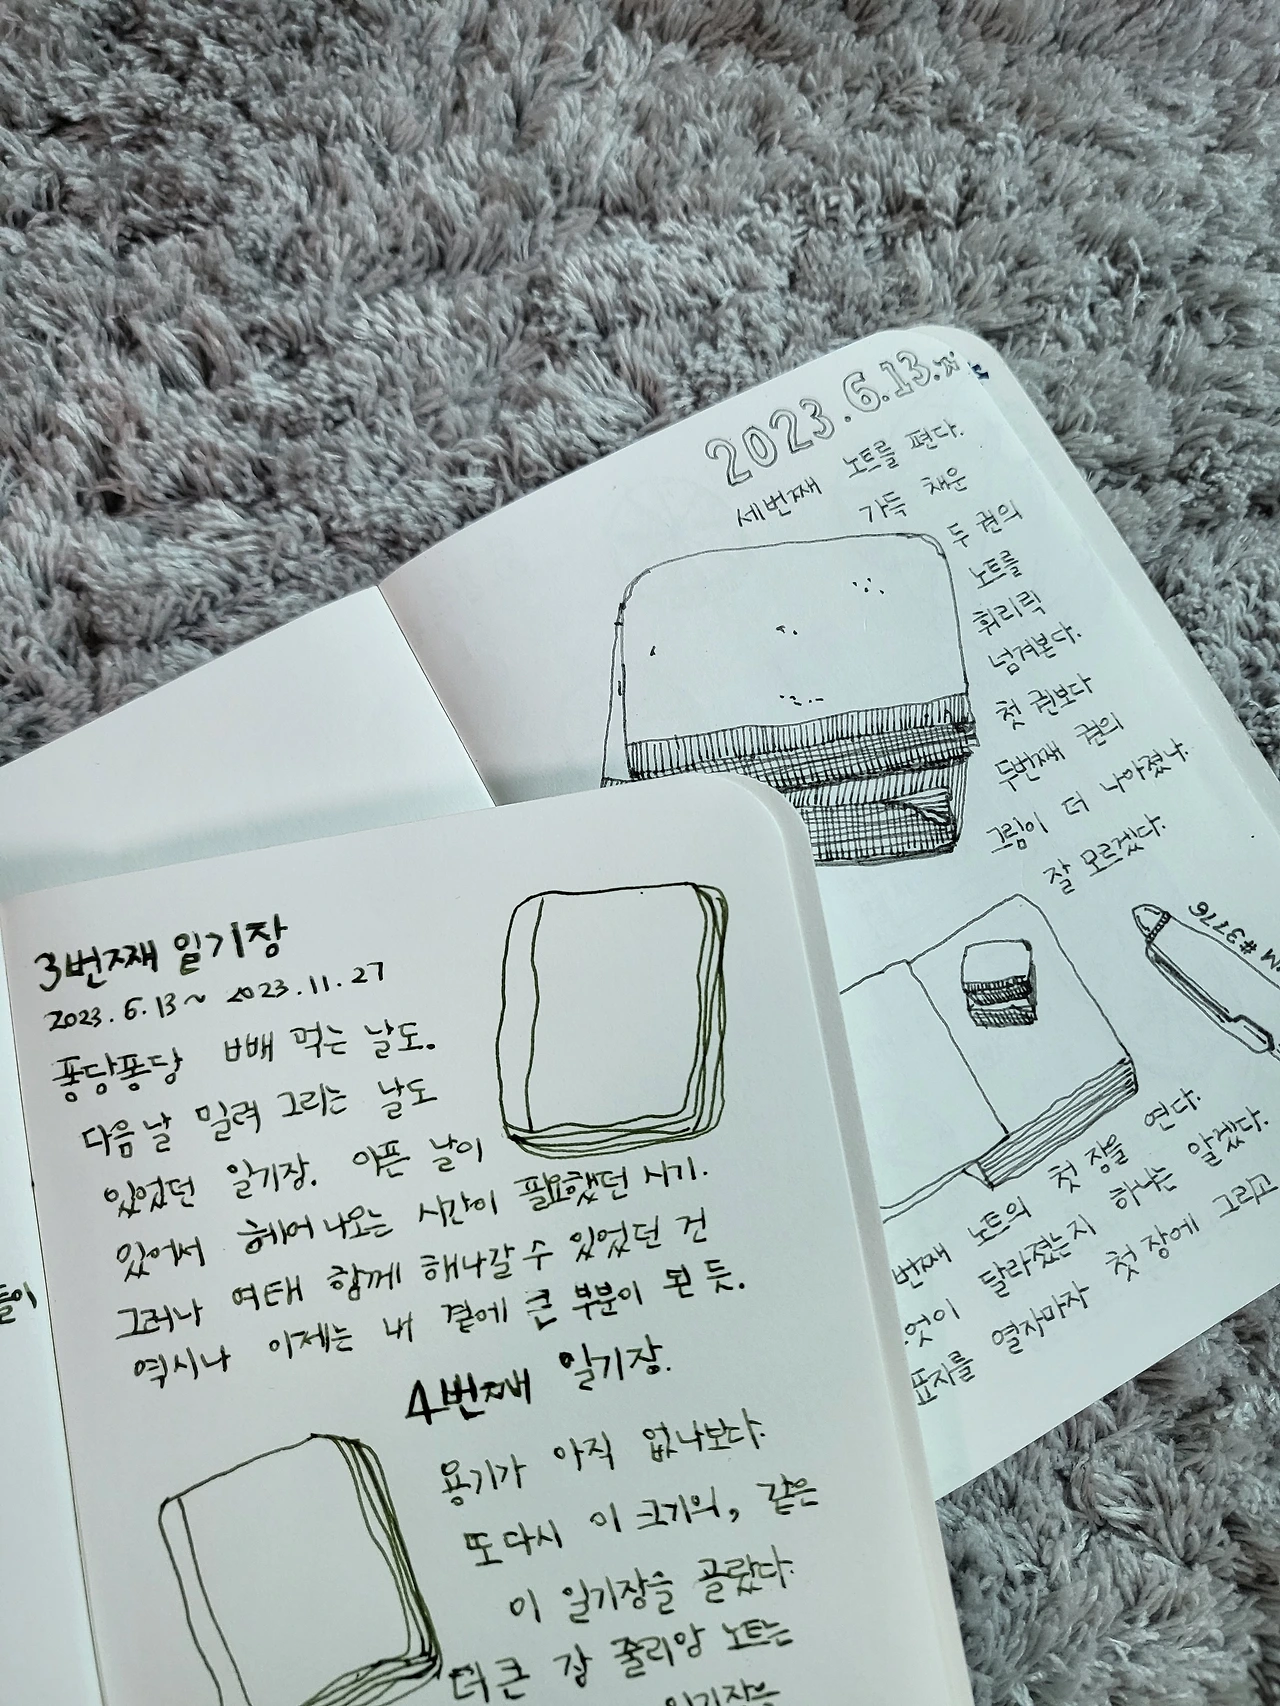 2023.6.13.
세번째 노트를 편다.
가득 채운
두 권의
노트를
휘리릭
넘겨본다.
첫 권보다
두번째 권의
그림이 더 나아졌나.
잘 모르겠다.
#3776
번째 노트의 첫 장을 연다.
엇이 달라졌는지 하나는 알겠다.
표자를 열자마자 첫 장에 그리고
3번째 일기장
2023.6.13~ 2023.11.27
퐁당퐁당 빼먹는 날도.
다음날 밀려 그리는 날도
있었던 일기장. 아픈 날이
있어서 헤어나오는 시간이 필요했던 시기.
그러나 여태 함께 해나갈 수 있었던 건
역시나 이제는 내 곁에 큰 부분이 된 듯.
4번째 일기장.
용기가 아직 없나보다.
또다시 이 크기의, 같은
이 일기장을 골랐다.
더 큰 줄리앙 노트는
일기장을
들이